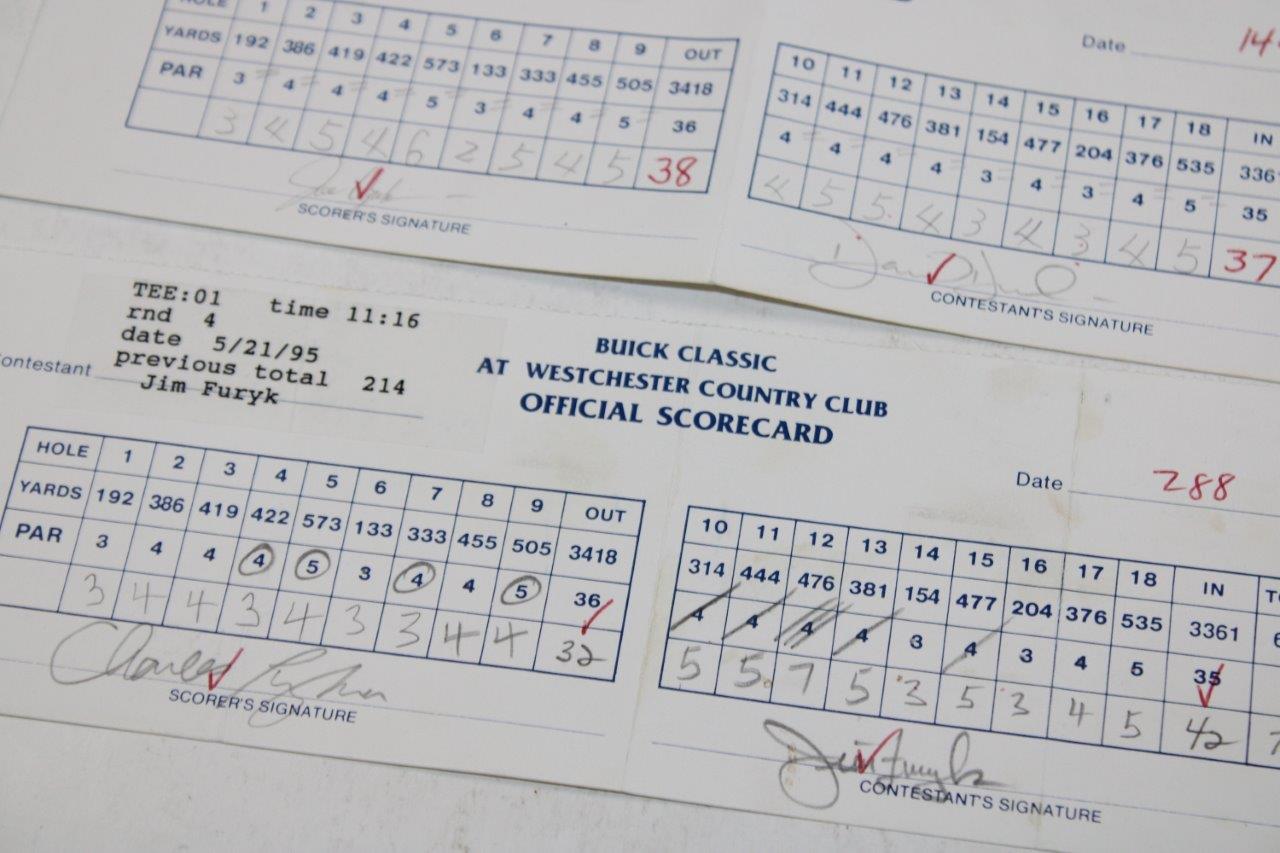 HOLE 1 2 3 4 5 6 7 8 9 OUT
YARDS 192 386 419 422 573 133 333 455 505 3418
PAR 3 4 4 4 5 3 4 4 5 36
3 4 5 4 6 2 5 4 5 38
SCORER'S SIGNATURE
Date
10 11 12 13 14 15 16 17 18 IN
314 444 476 381 154 477 204 376 535 336
4 4 4 4 3 4 3 4 5 35
4 5 5 4 3 4 3 4 5 37
CONTESTANT'S SIGNATURE
TEE:01 time 11:16
rnd 4
date 5/21/95
previous total 214
ontestant Jim Furyk
BUICK CLASSIC
AT WESTCHESTER COUNTRY CLUB
OFFICIAL SCORECARD
Date 288
HOLE 1 2 3 4 5 6 7 8 9 OUT
YARDS 192 386 419 422 573 133 333 455 505 3418
PAR 3 4 4 4 5 3 4 4 5 36
3 4 4 3 4 3 3 4 4 32
Charles
SCORER'S SIGNATURE
10 11 12 13 14 15 16 17 18 IN
314 444 476 381 154 477 204 376 535 3361
4 4 4 4 3 4 3 4 5 35
5 5 7 5 3 5 3 4 5 42
Jim Furyk
CONTESTANT'S SIGNATURE